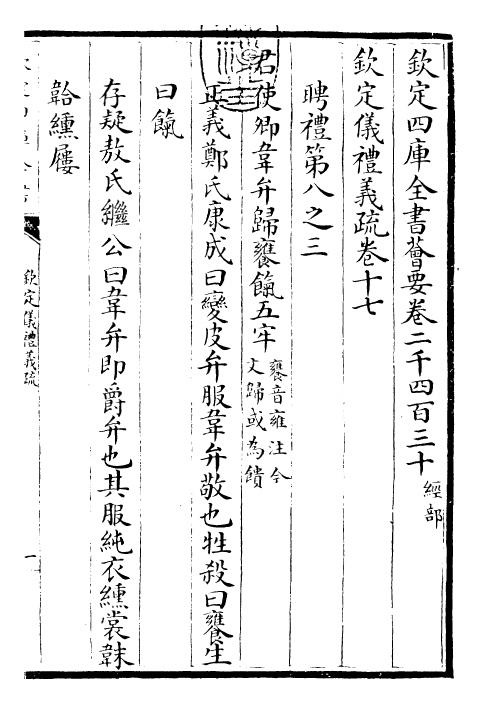 欽定四庫全書薈要卷二千四百三十 經部
欽定儀禮義疏卷十七
聘禮第八之三
君使卿韋弁歸饔餼五牢 饔音雍注今
文歸或為饋
正義鄭氏康成曰變皮弁服韋弁敬也牲殺曰饔生
曰餼
存疑敖氏繼公曰韋弁即爵弁也其服純衣纁裳韎
韐纁屨
欽定儀禮義疏
一